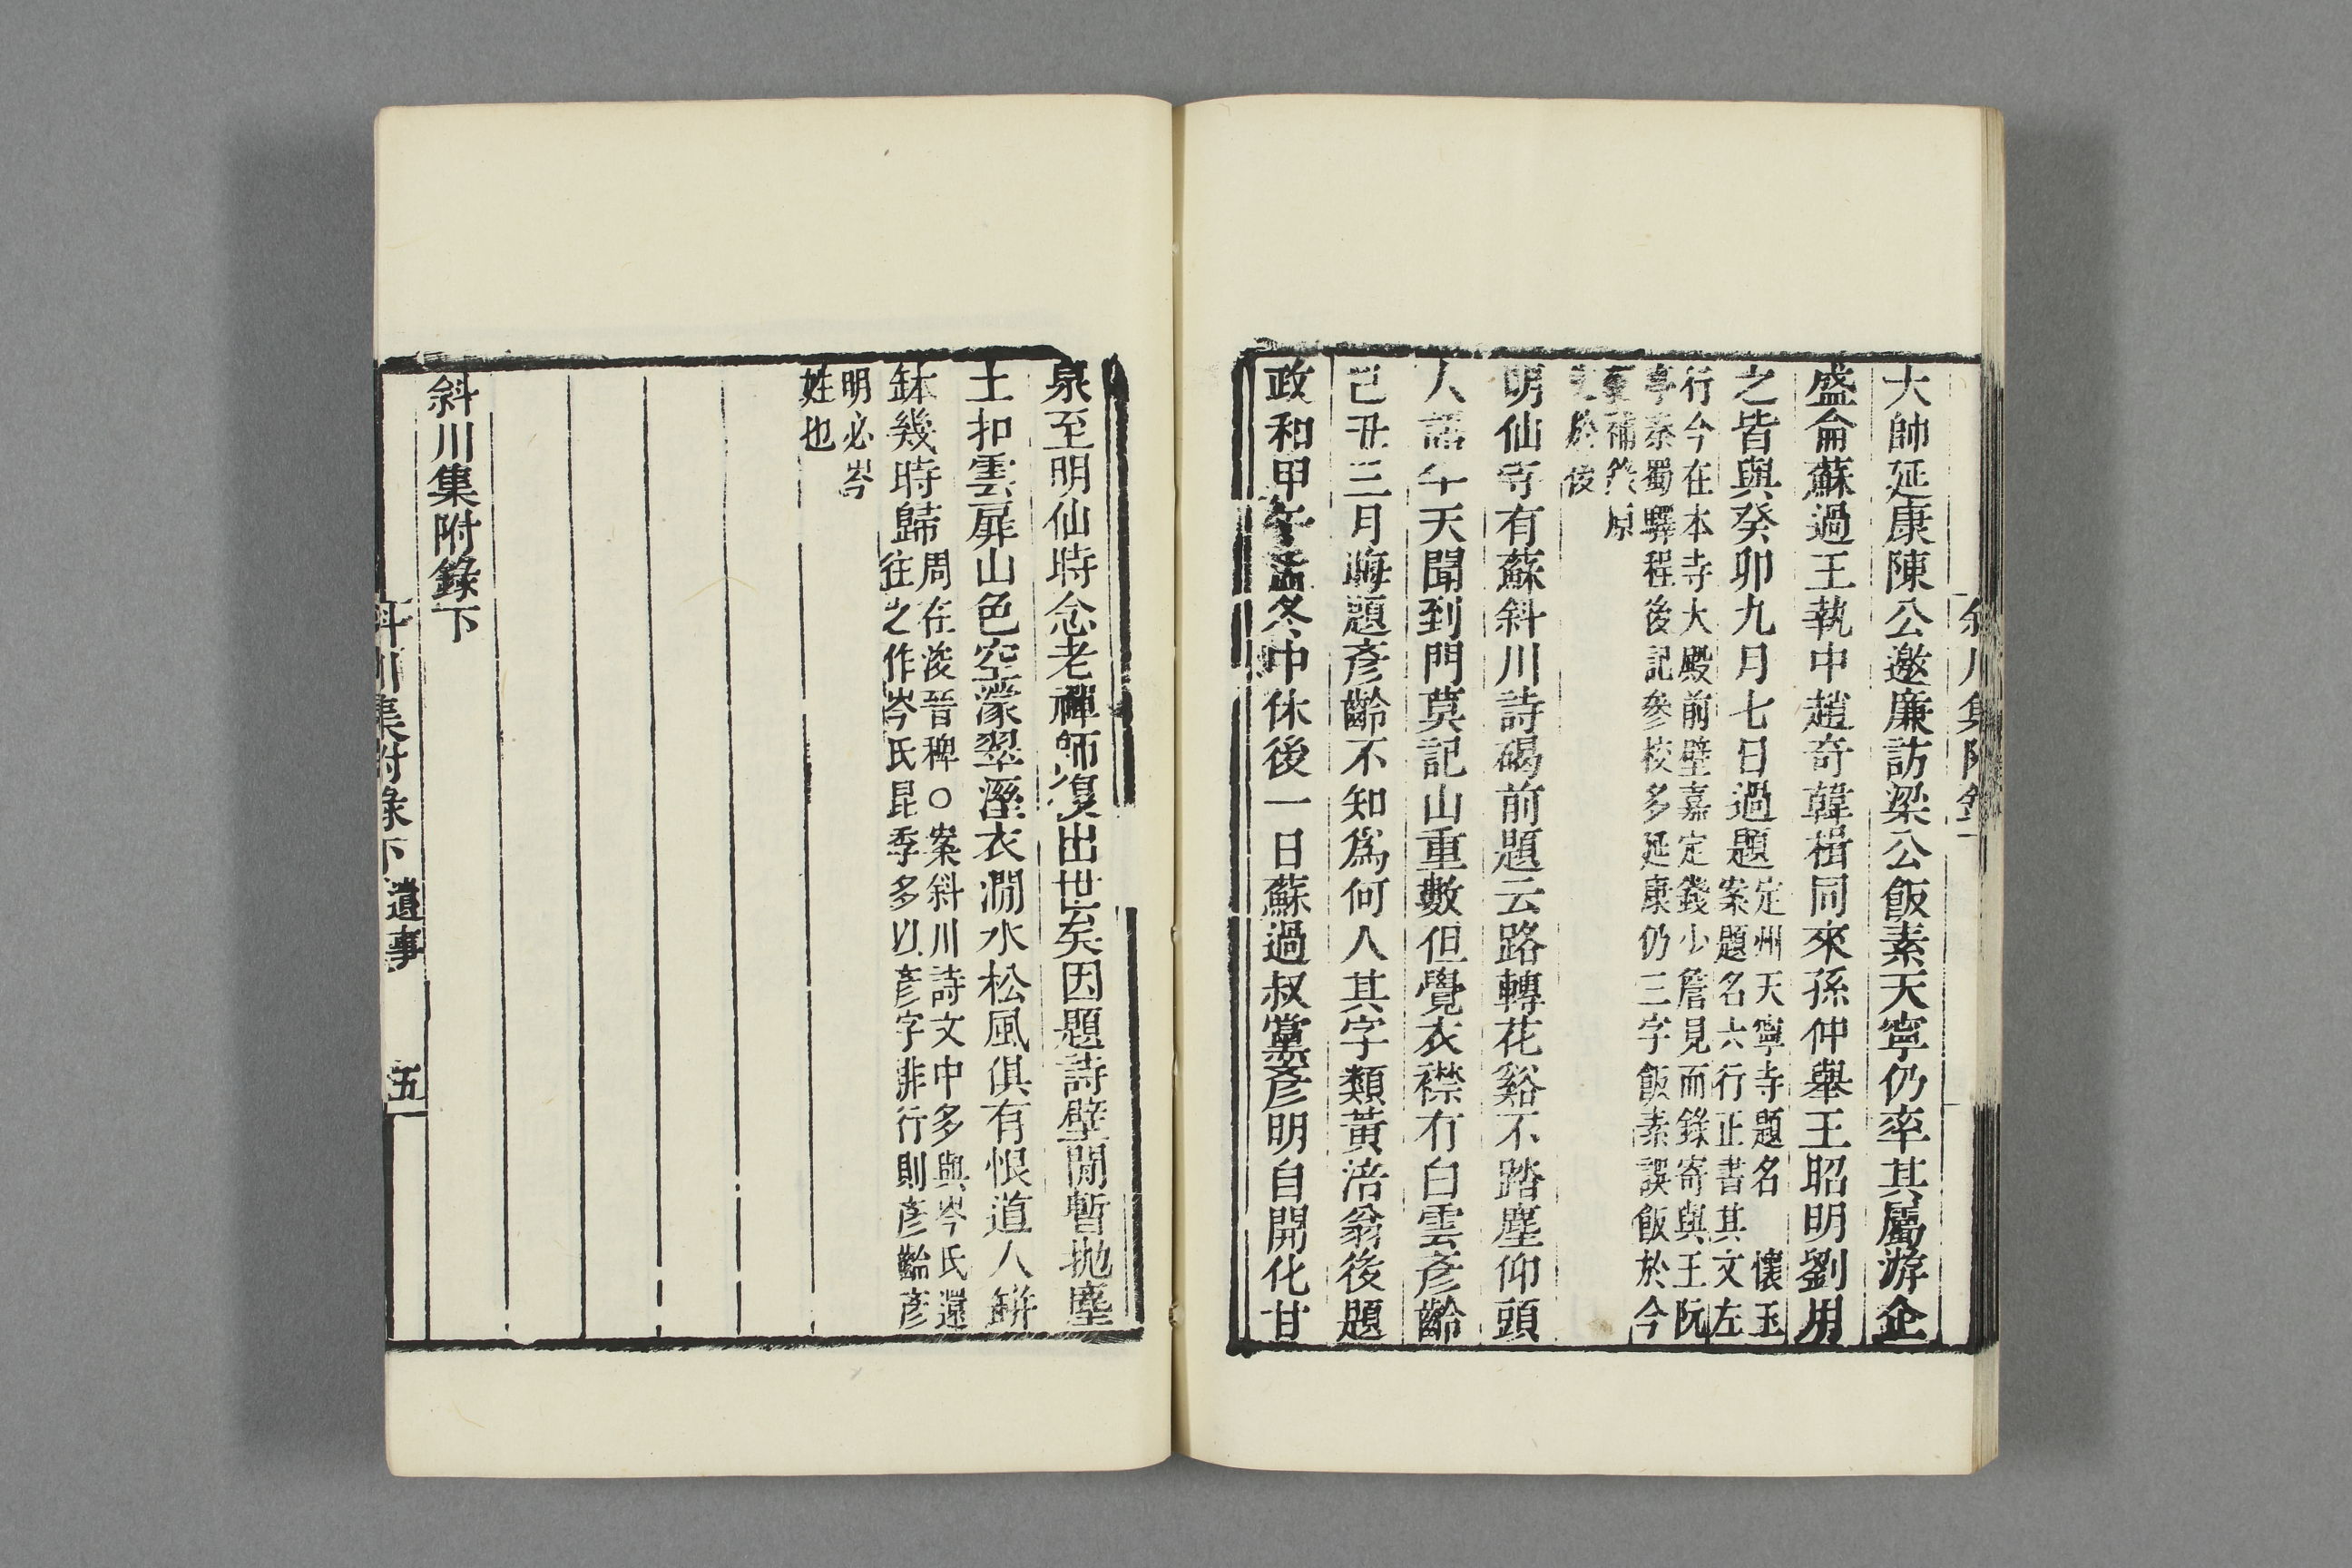 大帥延康陳公邀廉訪梁公飯素天寧仍率其屬游企
盛侖蘇過王執中趙奇韓楫同來孫仲舉王昭明劉用
之皆與癸卯九月七日過題
定州天寧寺題名 懷玉
案題名六行正書其文左
行今在本寺大殿前壁嘉定錢少詹見而錄寄與王阮
亭秦蜀驛程後記參校多延康仍三字飯素誤飯於今
補於原
於後
明仙寺有蘇斜川詩碣前題云路轉花谿不踏塵仰頭
人語半天聞到門莫記山重數但覺衣襟有白雲彥齡
己丑三月晦題彥齡不知爲何人其字類黃涪翁後題
政和甲午孟冬中休後一日蘇過叔黨彥明自開化甘
泉至明仙時念老禪師復出世矣因題詩壁閒暫拋塵
土扣雲扉山色空濛翠溼衣澗水松風俱有恨道人缾
鉢幾時歸
周在浚晉稗○案斜川詩文中多與岑氏還
往之作岑氏昆季多以彥字排行則彥齡彥
明必岑
姓也
斜川集附錄下
斜川集附錄下 遺事 五